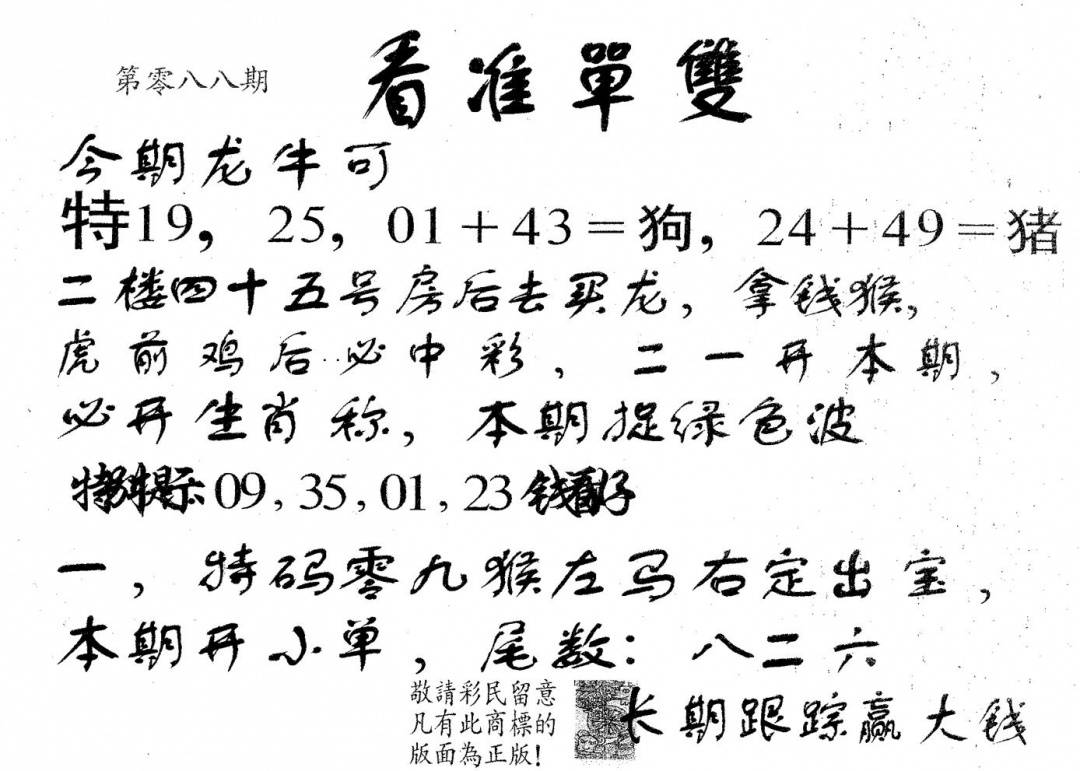 第零八八期
看准單雙
今期龙牛可
特19，25，01＋43＝狗，24＋49＝猪
二楼四十五号房后去买龙，拿钱猴，
虎前鸡后必中彩，二一开本期，
必开生肖称，本期捉绿色波
特别提示：09，35，01，23钱看仔
一，特码零九猴左马右定出宝，
本期开小单，尾数：八二六
敬請彩民留意
凡有此商標的
版面為正版！
长期跟踪赢大钱